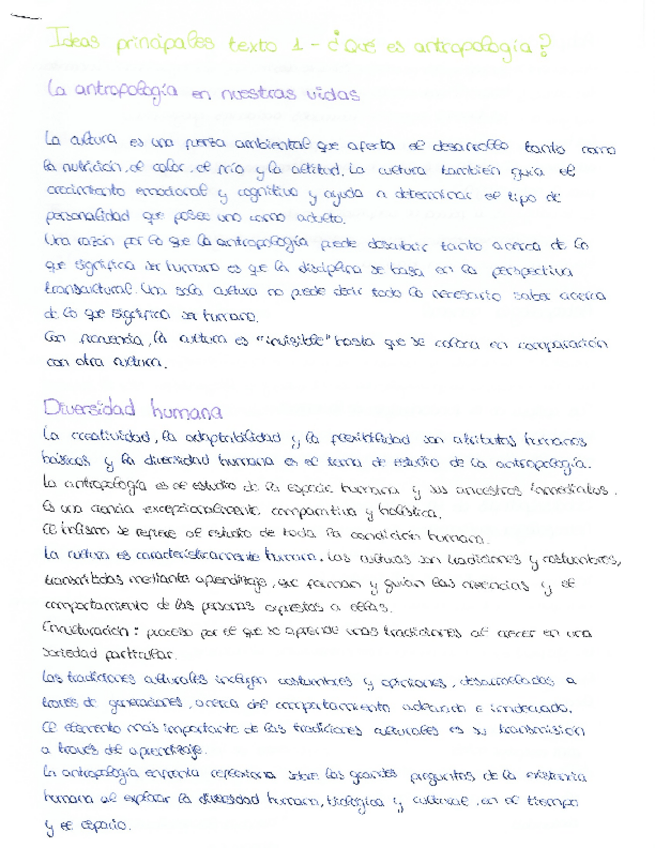 Ideas principales texto 1 - ¿Qué es antropología?
La antropología en nuestras vidas
La cultura es una fuerza ambiental que afecta el desarrollo tanto como
la nutrición, el calor, el frío y la altitud. La cultura también guía el
crecimiento emocional y cognitivo y ayuda a determinar el tipo de
personalidad que posee uno como adulto.
Una razón por lo que la antropología puede descubrir tanto acerca de lo
que significa ser humano es que la disciplina se basa en la perspectiva
transcultural. Una sola cultura no puede decir todo lo necesario saber acerca
de lo que significa ser humano.
Con frecuencia, la cultura es "invisible" hasta que se coloca en comparación
con otra cultura.
Diversidad humana
La creatividad, la adaptabilidad y la flexibilidad son atributos humanos
básicos y la diversidad humana es el tema de estudio de la antropología.
La antropología es el estudio de la especie humana y sus ancestros inmediatos.
Es una ciencia excepcionalmente comparativa y holística.
El holismo se refiere al estudio de toda la condición humana.
La cultura es característicamente humana. Las culturas son tradiciones y costumbres,
transmitidas mediante aprendizaje, que forman y guían las creencias y el
comportamiento de las personas expuestas a ellas.
Enculturación: proceso por el que se aprende unas tradiciones al crecer en una
sociedad particular.
Las tradiciones culturales incluyen costumbres y opiniones, desarrolladas a
través de generaciones, acerca del comportamiento adecuado e inadecuado.
El elemento más importante de las tradiciones culturales es su transmisión
a través del aprendizaje.
La antropología enfrenta reflexiona sobre las grandes preguntas de la existencia
humana al explorar la diversidad humana, biológica y cultural, en el tiempo
y el espacio.